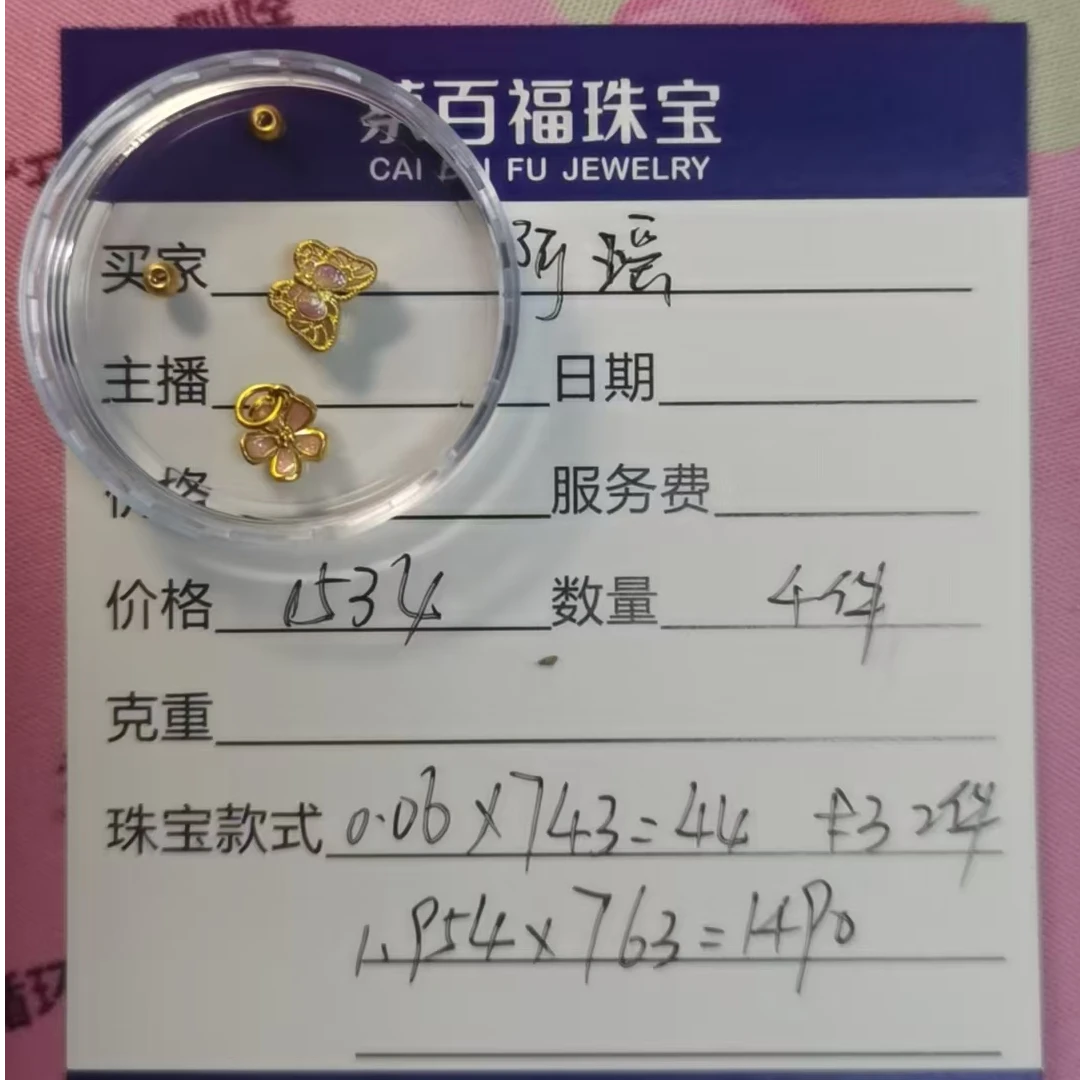 百福珠宝
CAI B FU JEWELRY
买家 阿瑶
主播 日期
价格 服务费
价格 1534 数量 4件
克重
珠宝款式 0.06×743=44 2件
1.954×763=1490